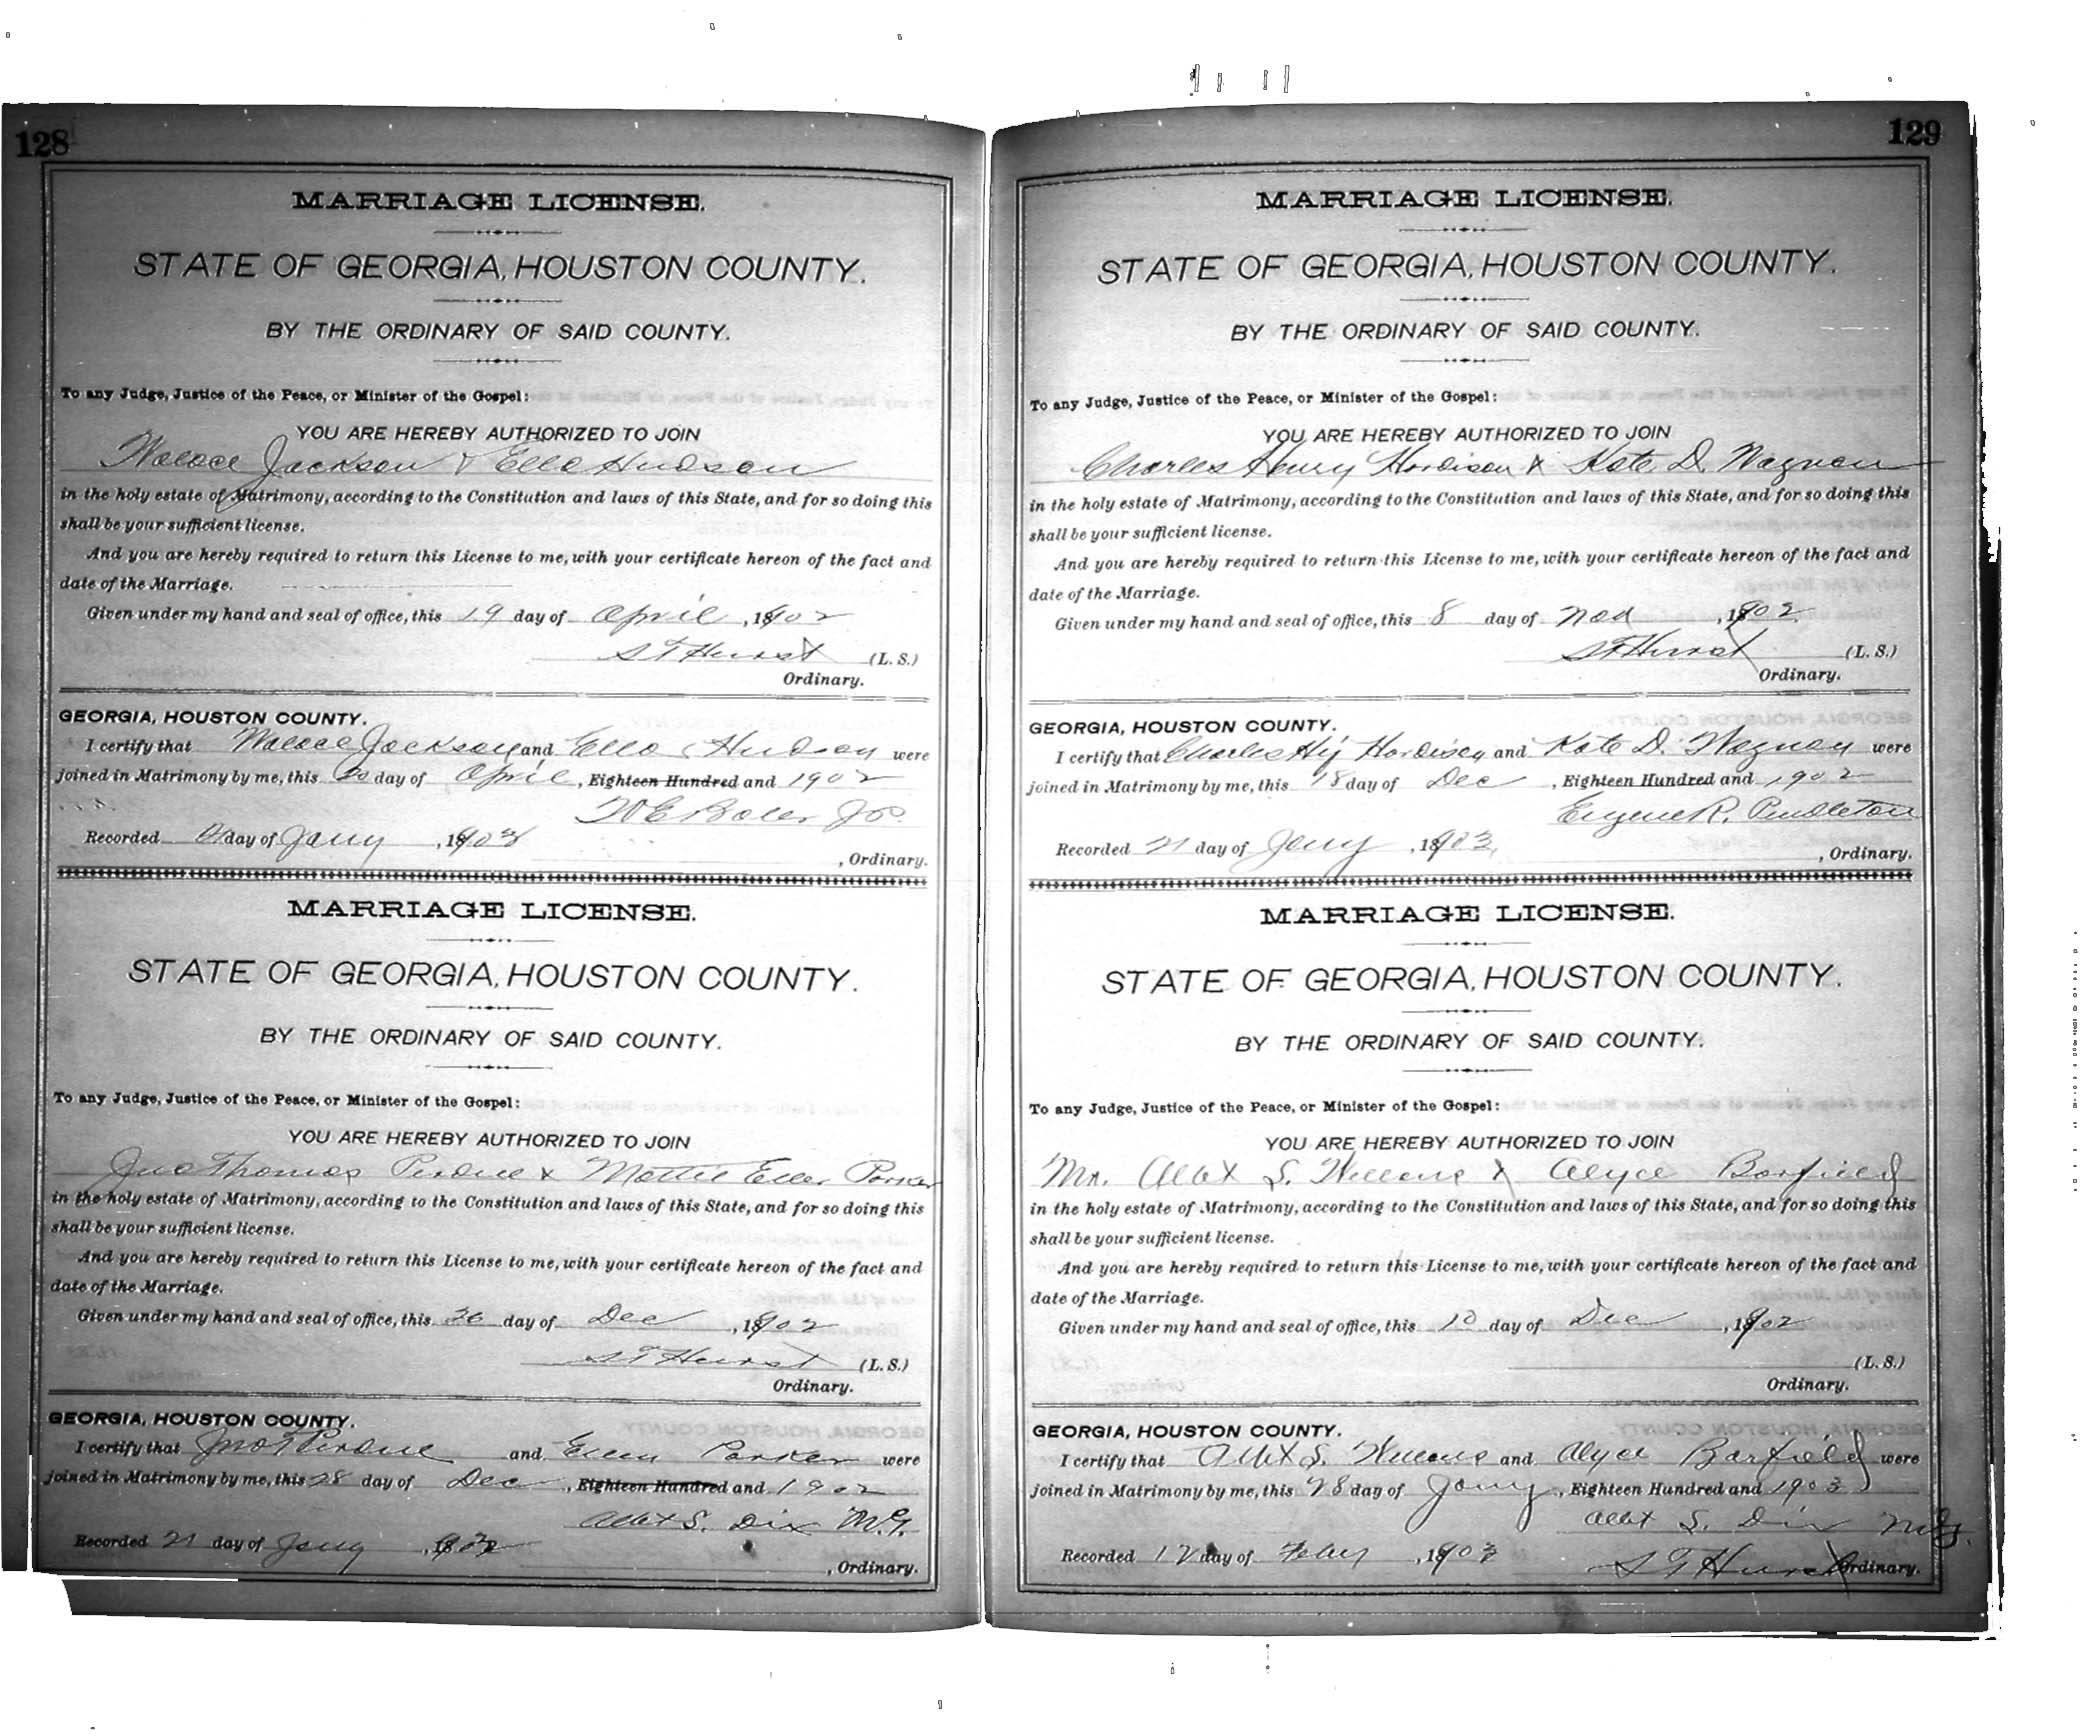 128
MARRIAGE LICENSE.
STATE OF GEORGIA, HOUSTON COUNTY.
BY THE ORDINARY OF SAID COUNTY.
To any Judge, Justice of the Peace, or Minister of the Gospel:
YOU ARE HEREBY AUTHORIZED TO JOIN
Walace Jackson & Ella Hudson
in the holy estate of Matrimony, according to the Constitution and laws of this State, and for so doing this
shall be your sufficient license.
And you are hereby required to return this License to me, with your certificate hereon of the fact and
date of the Marriage.
Given under my hand and seal of office, this 19 day of April, 1902
S T Hurst (L. S.)
Ordinary.
GEORGIA, HOUSTON COUNTY.
I certify that Walace Jackson and Ella Hudson were
joined in Matrimony by me, this 20 day of April, Eighteen Hundred and 1902
W E
Recorded day of Jany, 1903
, Ordinary.
MARRIAGE LICENSE.
STATE OF GEORGIA, HOUSTON COUNTY.
BY THE ORDINARY OF SAID COUNTY.
To any Judge, Justice of the Peace, or Minister of the Gospel:
YOU ARE HEREBY AUTHORIZED TO JOIN
Jno Thomas Perdue & Mattie Ellen Parker
in the holy estate of Matrimony, according to the Constitution and laws of this State, and for so doing this
shall be your sufficient license.
And you are hereby required to return this License to me, with your certificate hereon of the fact and
date of the Marriage.
Given under my hand and seal of office, this 26 day of Dec, 1902
S T Hurst (L. S.)
Ordinary.
GEORGIA, HOUSTON COUNTY.
I certify that Jno T Perdue and Ellen Parker were
joined in Matrimony by me, this 28 day of Dec, Eighteen Hundred and 1902
Allex S. Dix M.G.
Recorded 21 day of Jany
, Ordinary.
129
MARRIAGE LICENSE.
STATE OF GEORGIA, HOUSTON COUNTY.
BY THE ORDINARY OF SAID COUNTY.
To any Judge, Justice of the Peace, or Minister of the Gospel:
YOU ARE HEREBY AUTHORIZED TO JOIN
Charles Henry Hardison & Kate D. Wagnon
in the holy estate of Matrimony, according to the Constitution and laws of this State, and for so doing this
shall be your sufficient license.
And you are hereby required to return this License to me, with your certificate hereon of the fact and
date of the Marriage.
Given under my hand and seal of office, this 8 day of Nov, 1902
S T Hurst (L. S.)
Ordinary.
GEORGIA, HOUSTON COUNTY.
I certify that Charles Hy Hardison and Kate D. Wagnon were
joined in Matrimony by me, this 18 day of Dec, Eighteen Hundred and 1902
Eugene R. Pendleton
Recorded 21 day of Jany, 1903
, Ordinary.
MARRIAGE LICENSE.
STATE OF GEORGIA, HOUSTON COUNTY.
BY THE ORDINARY OF SAID COUNTY.
To any Judge, Justice of the Peace, or Minister of the Gospel:
YOU ARE HEREBY AUTHORIZED TO JOIN
Mr. Allex S. & Alyce Barfield
in the holy estate of Matrimony, according to the Constitution and laws of this State, and for so doing this
shall be your sufficient license.
And you are hereby required to return this License to me, with your certificate hereon of the fact and
date of the Marriage.
Given under my hand and seal of office, this 10 day of Dec, 1902
(L. S.)
Ordinary.
GEORGIA, HOUSTON COUNTY.
I certify that Allex S. and Alyce Barfield were
joined in Matrimony by me, this 28 day of Jany, Eighteen Hundred and 1903
Allex S. Dix M.G.
Recorded 12 day of Feby, 1903
S T Hurst Ordinary.